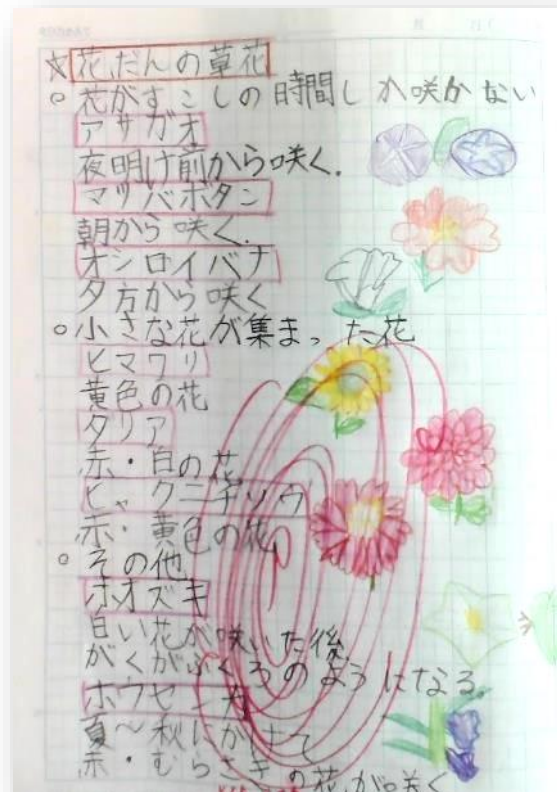 ☆花だんの草花
○花がすこしの時間しか咲かない
アサガオ
夜明け前から咲く.
マツバボタン
朝から咲く.
オシロイバナ
夕方から咲く
○小さな花が集まった花
ヒマワリ
黄色の花
タリア
赤・白の花
ヒャクニチソウ
赤・黄色の花
○その他
ホオズキ
白い花が咲いた後
がくがふくろのようになる.
ホウセンカ
夏～秋にかけて
赤・むらさきの花が咲く